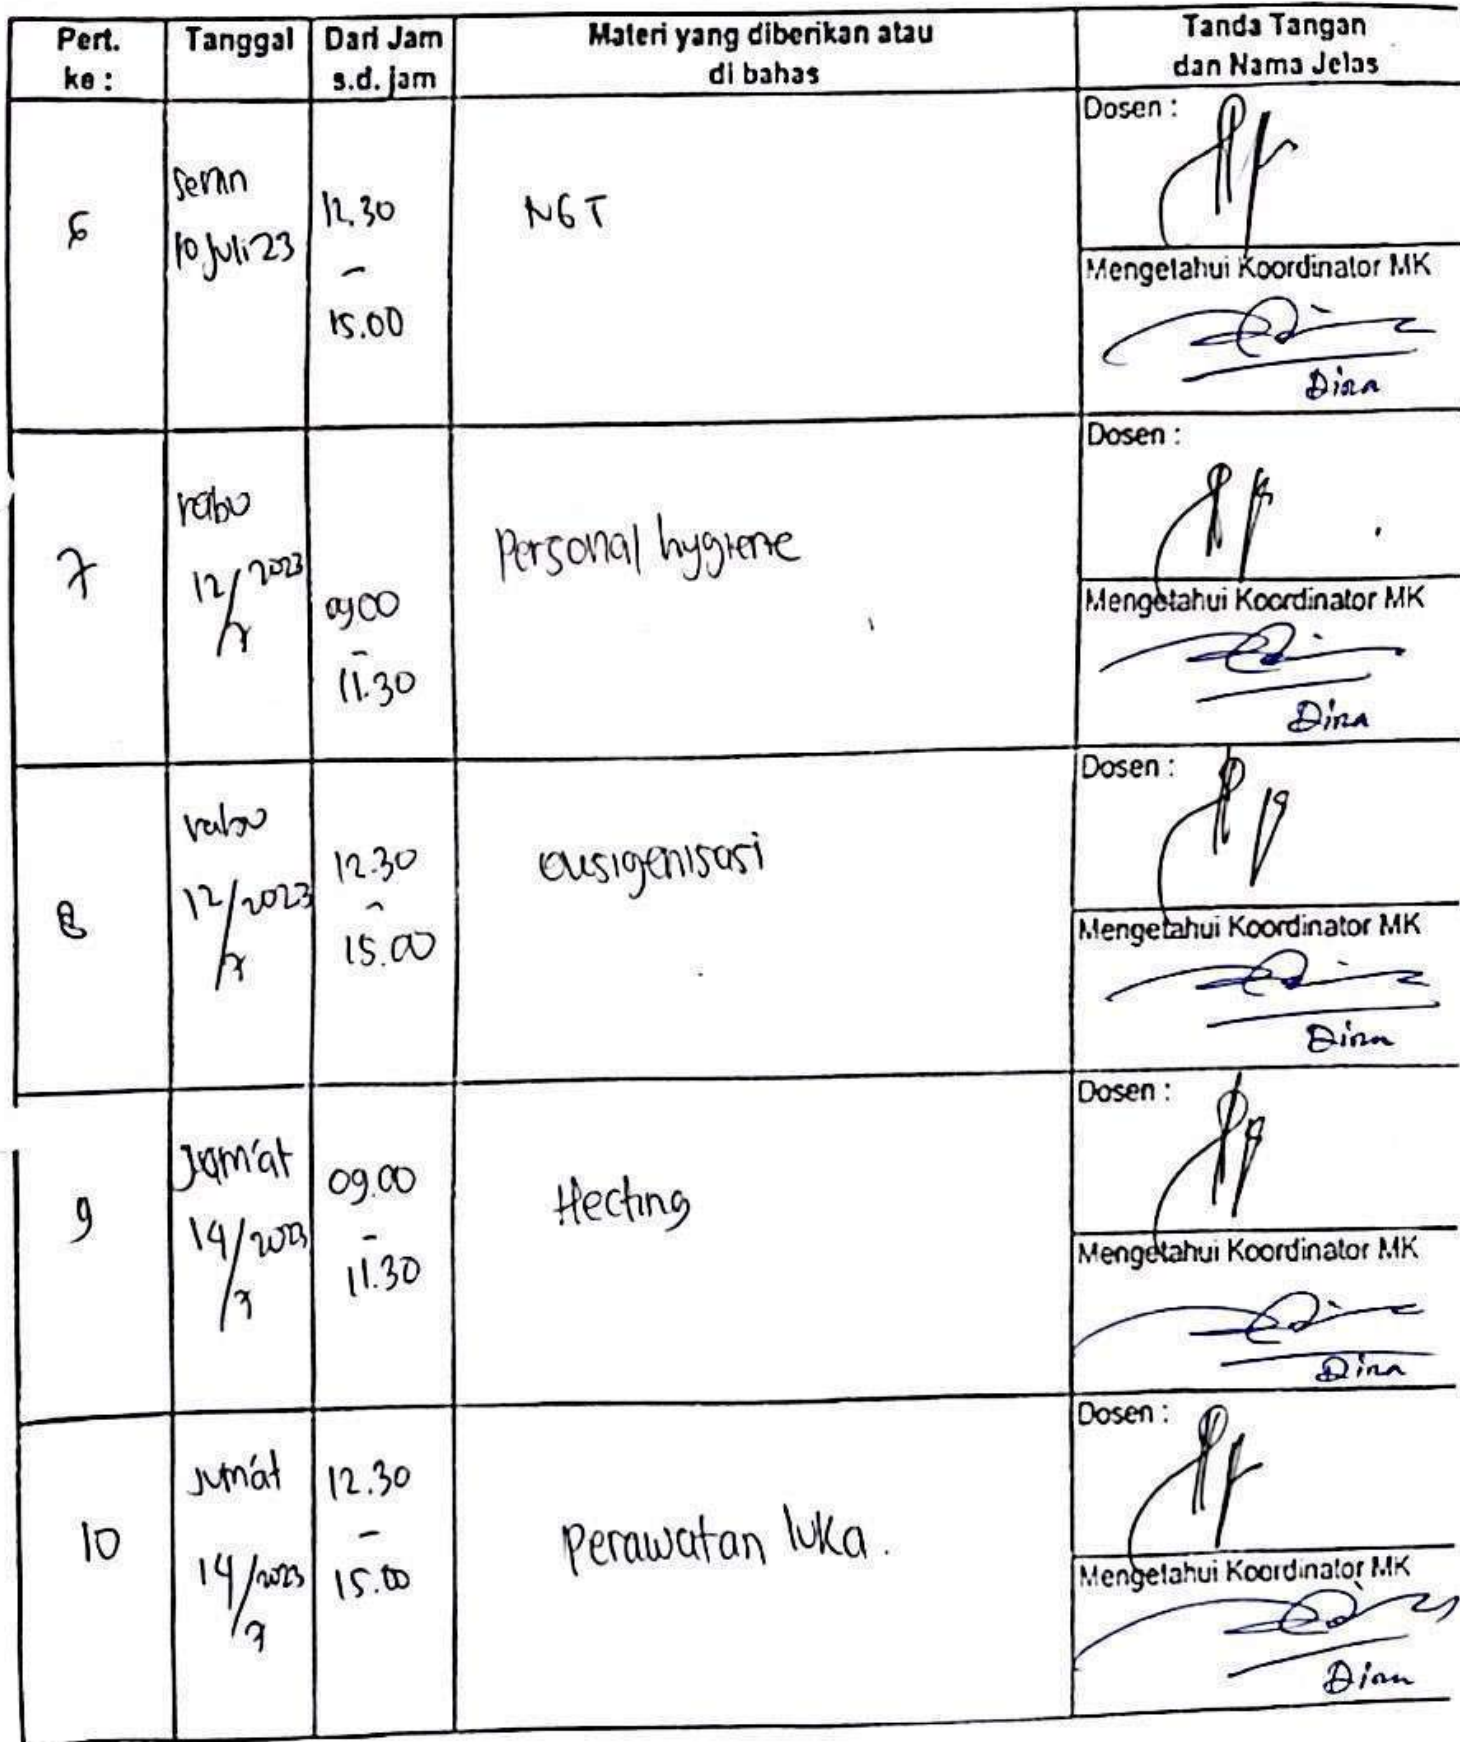 Pert. ke :
Tanggal
Dari Jam s.d. jam
Materi yang diberikan atau di bahas
Tanda Tangan dan Nama Jelas
6
Senin
10 Juli 23
12.30
-
15.00
NGT
Dosen :
Mengetahui Koordinator MK
Dina
7
rabu
12/7 2023
09.00
-
11.30
Personal hygiene
Dosen :
Mengetahui Koordinator MK
Dina
8
rabu
12/7 2023
12.30
-
15.00
Dosen :
Mengetahui Koordinator MK
Dina
9
Jum'at
14/7 2023
09.00
-
11.30
Hecting
Dosen :
Mengetahui Koordinator MK
Dina
10
Jum'at
14/7 2023
12.30
-
15.00
Perawatan luka.
Dosen :
Mengetahui Koordinator MK
Dina